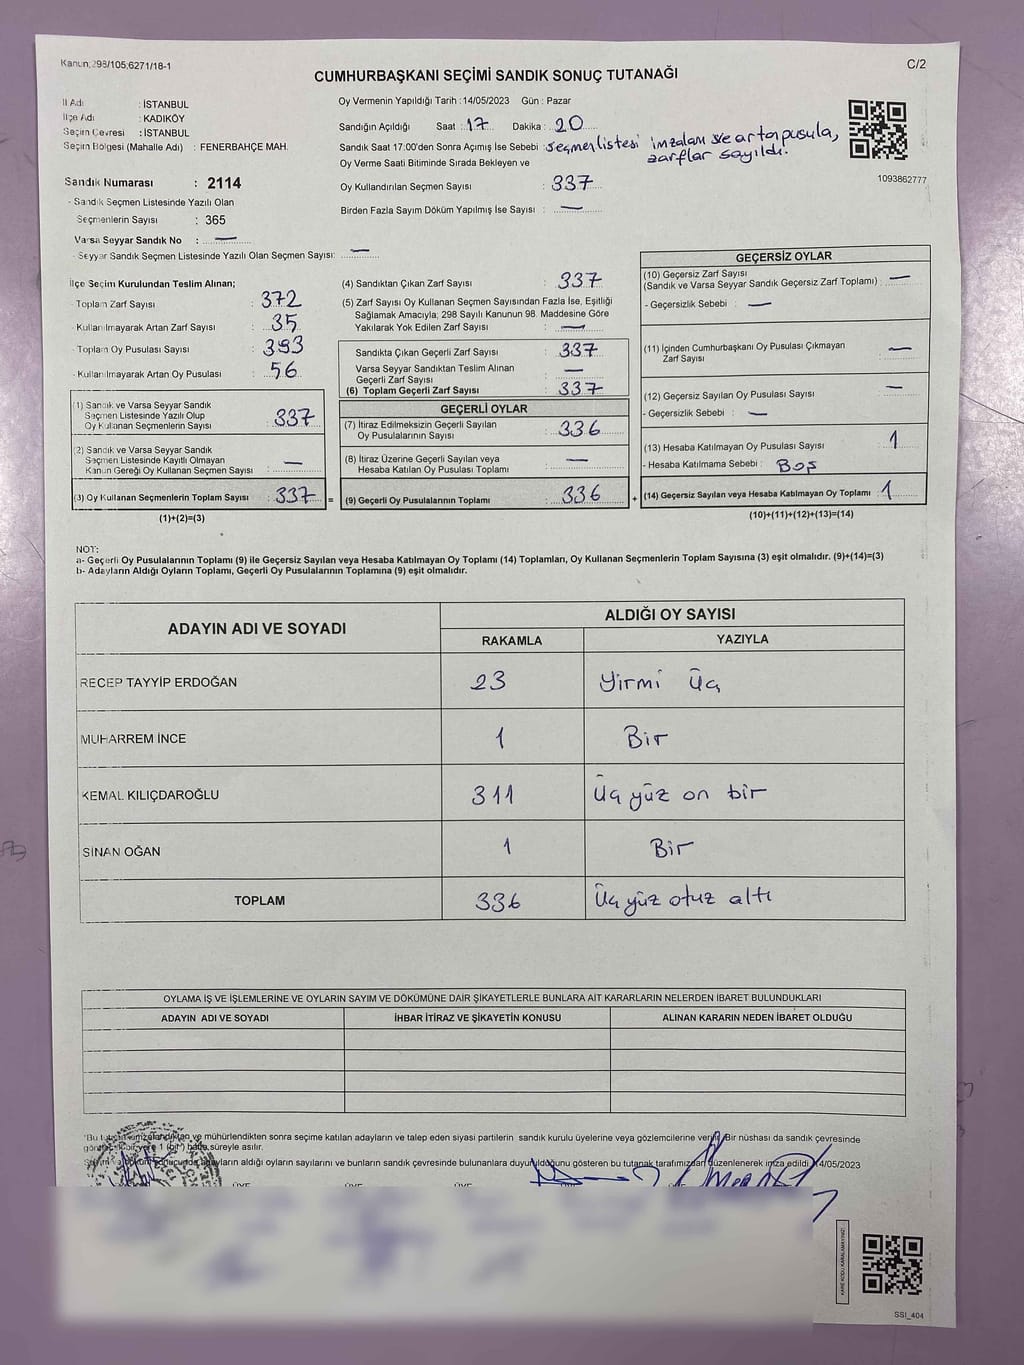 Kanun;298/105;6271/18-1
C/2
CUMHURBAŞKANI SEÇİMİ SANDIK SONUÇ TUTANAĞI
İl Adı : İSTANBUL
İlçe Adı : KADIKÖY
Seçim Çevresi : İSTANBUL
Seçim Bölgesi (Mahalle Adı) : FENERBAHÇE MAH.
Oy Vermenin Yapıldığı Tarih : 14/05/2023 Gün : Pazar
Sandığın Açıldığı Saat : 17 Dakika : 20
Sandık Saat 17:00'den Sonra Açımış İse Sebebi : Seçmen listesi imzaları ve artan pusula,
zarflar sayıldı.
Oy Verme Saati Bitiminde Sırada Bekleyen ve
Oy Kullandırılan Seçmen Sayısı : 337
Birden Fazla Sayım Döküm Yapılmış İse Sayısı : —
1093862777
Sandık Numarası : 2114
- Sandık Seçmen Listesinde Yazılı Olan
Seçmenlerin Sayısı : 365
Varsa Seyyar Sandık No : —
- Seyyar Sandık Seçmen Listesinde Yazılı Olan Seçmen Sayısı: —
İlçe Seçim Kurulundan Teslim Alınan;
- Toplam Zarf Sayısı : 372
- Kullanılmayarak Artan Zarf Sayısı : 35
- Toplam Oy Pusulası Sayısı : 393
- Kullanılmayarak Artan Oy Pusulası : 56
(1) Sandık ve Varsa Seyyar Sandık
Seçmen Listesinde Yazılı Olup
Oy Kullanan Seçmenlerin Sayısı : 337
(2) Sandık ve Varsa Seyyar Sandık
Seçmen Listesinde Kayıtlı Olmayan
Kanun Gereği Oy Kullanan Seçmen Sayısı : —
(3) Oy Kullanan Seçmenlerin Toplam Sayısı : 337 =
(1)+(2)=(3)
(4) Sandıktan Çıkan Zarf Sayısı : 337
(5) Zarf Sayısı Oy Kullanan Seçmen Sayısından Fazla İse, Eşitliği
Sağlamak Amacıyla; 298 Sayılı Kanunun 98. Maddesine Göre
Yakılarak Yok Edilen Zarf Sayısı : —
Sandıkta Çıkan Geçerli Zarf Sayısı : 337
Varsa Seyyar Sandıktan Teslim Alınan
Geçerli Zarf Sayısı : —
(6) Toplam Geçerli Zarf Sayısı : 337
GEÇERLİ OYLAR
(7) İtiraz Edilmeksizin Geçerli Sayılan
Oy Pusulalarının Sayısı : 336
(8) İtiraz Üzerine Geçerli Sayılan veya
Hesaba Katılan Oy Pusulası Toplamı : —
(9) Geçerli Oy Pusulalarının Toplamı : 336 +
GEÇERSİZ OYLAR
(10) Geçersiz Zarf Sayısı
(Sandık ve Varsa Seyyar Sandık Geçersiz Zarf Toplamı) : —
- Geçersizlik Sebebi : —
(11) İçinden Cumhurbaşkanı Oy Pusulası Çıkmayan
Zarf Sayısı : —
(12) Geçersiz Sayılan Oy Pusulası Sayısı —
- Geçersizlik Sebebi : —
(13) Hesaba Katılmayan Oy Pusulası Sayısı 1
- Hesaba Katılmama Sebebi : Boş
(14) Geçersiz Sayılan veya Hesaba Katılmayan Oy Toplamı : 1
(10)+(11)+(12)+(13)=(14)
NOT:
a- Geçerli Oy Pusulalarının Toplamı (9) ile Geçersiz Sayılan veya Hesaba Katılmayan Oy Toplamı (14) Toplamları, Oy Kullanan Seçmenlerin Toplam Sayısına (3) eşit olmalıdır. (9)+(14)=(3)
b- Adayların Aldığı Oyların Toplamı, Geçerli Oy Pusulalarının Toplamına (9) eşit olmalıdır.
ADAYIN ADI VE SOYADI
ALDIĞI OY SAYISI
RAKAMLA YAZIYLA
RECEP TAYYİP ERDOĞAN 23 Yirmi Üç
MUHARREM İNCE 1 Bir
KEMAL KILIÇDAROĞLU 311 Üç yüz on bir
SİNAN OĞAN 1 Bir
TOPLAM 336 Üç yüz otuz altı
OYLAMA İŞ VE İŞLEMLERİNE VE OYLARIN SAYIM VE DÖKÜMÜNE DAİR ŞİKAYETLERLE BUNLARA AİT KARARLARIN NELERDEN İBARET BULUNDUKLARI
ADAYIN ADI VE SOYADI İHBAR İTİRAZ VE ŞİKAYETİN KONUSU ALINAN KARARIN NEDEN İBARET OLDUĞU
ve mühürlendikten sonra seçime katılan adayların ve talep eden siyasi partilerin sandık kurulu üyelerine veya gözlemcilerine verilir. Bir nüshası da sandık çevresinde
süreyle asılır.
adayların aldığı oyların sayılarını ve bunların sandık çevresinde bulunanlara duyurulduğunu gösteren bu tutanak tarafımızdan düzenlenerek imza edildi. 14/05/2023
ÜYE ÜYE ÜYE
KARE KODU KARALAMAYINIZ!
SSI_404